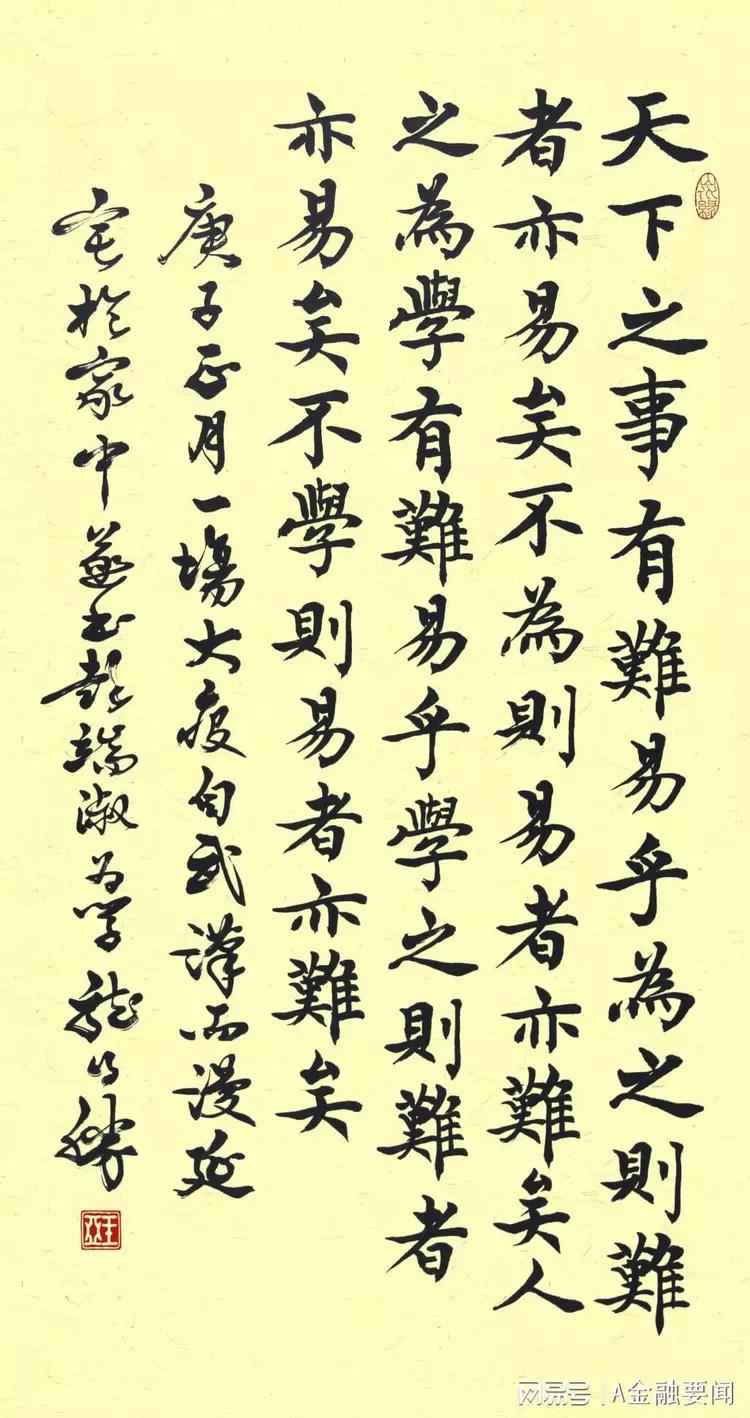 天下之事有難易乎為之則難
者亦易矣不為則易者亦難矣人
之為學有難易乎學之則難者
亦易矣不學則易者亦難矣
庚子正月一場大疫自武漢而漫延
宅於家中書彭端淑为学
网易号 | A金融要闻